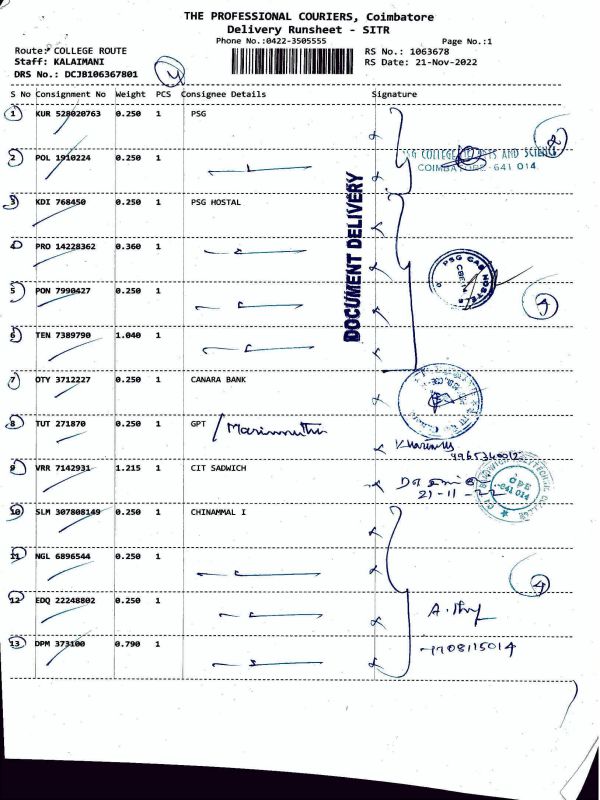 THE PROFESSIONAL COURIERS, Coimbatore
Delivery Runsheet - SITR
Phone No.:0422-3505555 Page No.:1
Route: COLLEGE ROUTE RS No.: 1063678
Staff: KALAIMANI RS Date: 21-Nov-2022
DRS No.: DCJB106367801
S No Consignment No Weight PCS Consignee Details Signature
1 KUR 528020763 0.250 1 PSG
2 POL 1910224 0.250 1
PSG COLLEGE OF ARTS AND SCIENCE
COIMBATORE-641 014.
3 KDI 768450 0.250 1 PSG HOSTAL
DOCUMENT DELIVERY
4 PRO 14228362 0.360 1
PSG CAS HOSTEL
5 PON 7990427 0.250 1
6 TEN 7389790 1.040 1
7 OTY 3712227 0.250 1 CANARA BANK
8 TUT 271870 0.250 1 GPT / Marimuthu
9965340012
9 VRR 7142931 1.215 1 CIT SADWICH
21-11-22
641 014
10 SLM 307808149 0.250 1 CHINAMMAL I
11 NGL 6896544 0.250 1
4
12 EDQ 22248802 0.250 1
13 DPM 373100 0.790 1
7708115014